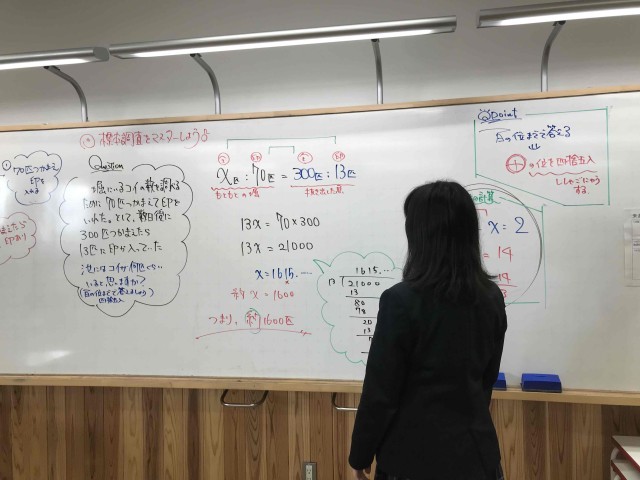 標本調査をマスターしよう
70匹つかまえ
印を
Question
堀にいるコイの数を調べる
ために 70匹つかまえて印を
いれた。そして、数日後に
300匹つかまえたら
13匹に印が入っていた
池にはコイが何匹くらい
いると思いますか?
(百の位まで答えましょう)
四捨五入
x匹:70匹=300匹:13匹
もともとの堀
13x=70×300
13x=21000
x=1615.…
約 x=1600
つまり、約1600匹
1615…
21000
13
80
78
20
13
Point
百の位まで答える
↓
十の位を四捨五入
ししゃごにゅう
する
x=2
=14